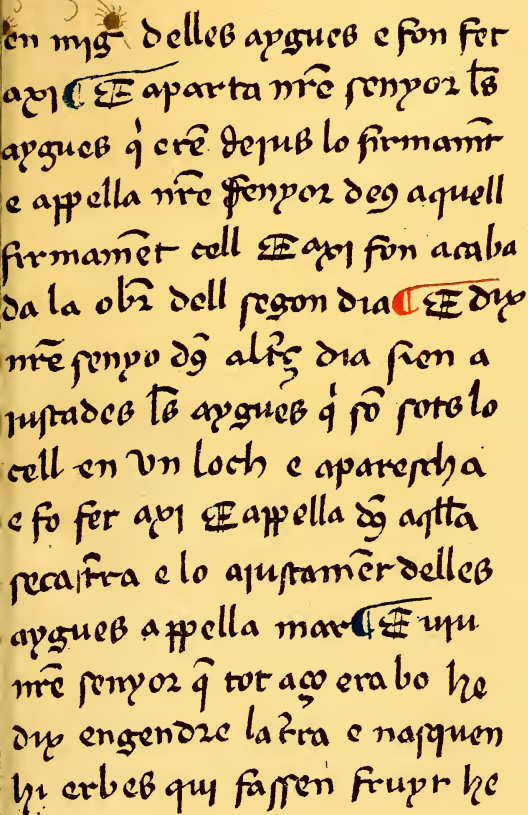 en mig delles aygues e fon fet
axi ¶ E aparta nr̄e senyor l̄s
aygues q̇ erē dejus lo firmam̄t
e appella nr̄e senyor deꝯ aquell
firmam̄et cell E axi fon acaba
da la ob̄r dell segon dia ¶ E dix
nr̄e senyo d̄ꝯ alt̄ꝯ dia sien a
iustades l̄s aygues q̇ sō sots lo
cell en vn loch e aparescha
e fo fet axi E appella d̄ꝯ aq̄lla
seca t̄rra e lo aiustamēt delles
aygues appella mar ¶ E viu
nr̄e senyor q̄ tot aço era bo he
dix engendre la t̄rra e nasquen
hi erbes qui fassen fruyt he